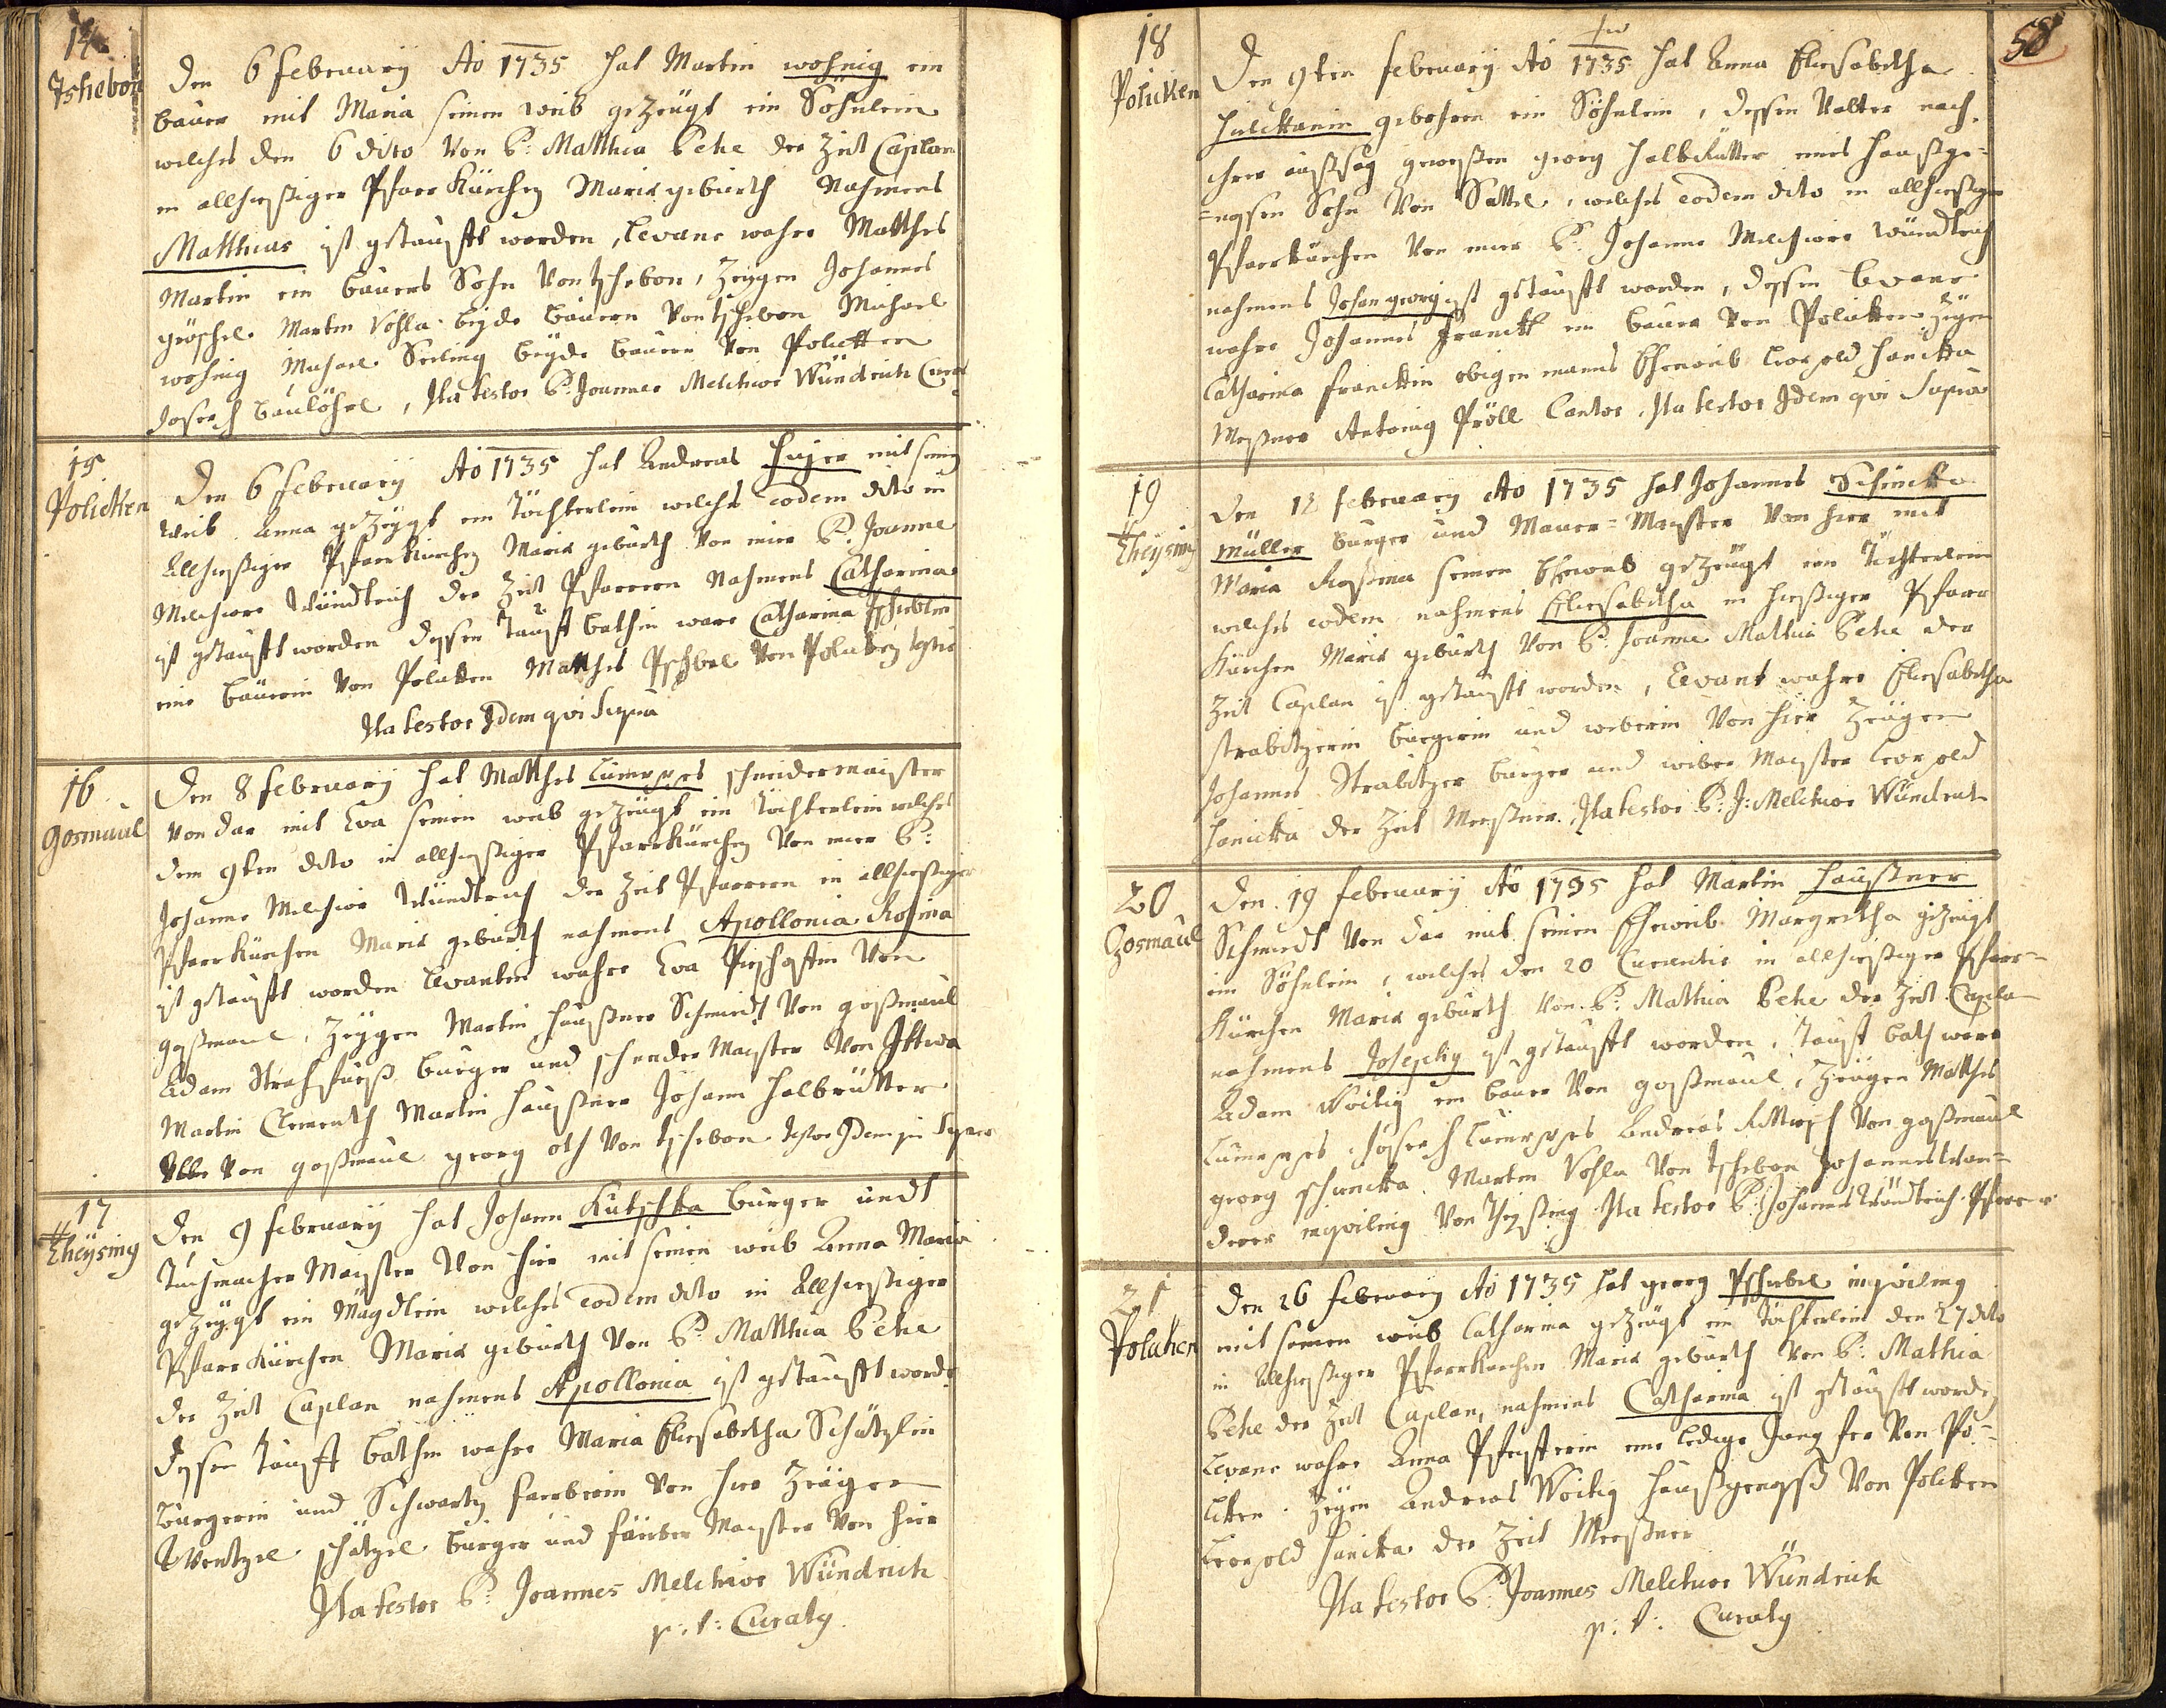 14
Tschebon
Den 6 februarij Ao 1735 hat Martin wohnig ein
bauer mit Maria seinen weib gezeügt ein Söhnlein
welches den 6 dito Von P: Matthia Pehe der Zeit Caplan
in allhießiger Pfarr Kürchen Mariæ geburth Nahmens
Matthias ist getaufft worden, Levans wahre Matthes
Martin ein bauers Sohn Von tschebon, Zeugen Johannes
gröschl Martin Vohla beyde bauern Von tschebon Michael
wohnig Michael Seiling beyde bauern Von Poliken
Joseph, Ita testor P: Joannes Melchior Wündrich Curat
15
Policken
Den 6 februarij Ao 1735 hat Andreas Hujer mit seinen
weib Anna gezeügt ein Töchterlein welches eodem dito in
Allhießiger Pfarr Kürchen Mariæ geburth Von mier P. Joanne
Melchiore Wündrich der Zeit Pfarrern Nahmens Catharina
ist getaufft worden dessen Tauff bathin ware Catharina
eine bäuerin Von Policken Matthes Pschibel Von Policken
Ita testor Idem qui Supra
16
Gosmaul
Den 8 februarij hat Matthes schneidermaister
Von dar mit Eva seinen weib gezeügt ein Töchterlein welches
den 9ten dito in allhießiger Pfarrkürchen Von mier P:
Johanne Melchior Wündrich der Zeit Pfarrern in allhießiger
Pfarr Kürchen Mariæ geburth nahmens Apollonia Rosina
ist getaufft worden Levantin wahre Eva Von
goßmaul, Zeügen Martin haußner Schmidt Von goßmaul
Adam burger und schneider Maister Von
Martin Clementh Martin haußner Johann halbrütter
Von goßmaul georg Von tschebon testor Idem qui Supra
17
Theÿsing
Den 9 februarij hat Johann Kutschka burger undt
Tuchmacher Maister Von hier mit seinen weib Anna Maria
gezeügt ein Mägdlein welches eodem dito in Allhießiger
Pfarr Kürchen Mariæ geburth Von P: Matthia Pehe
der Zeit Caplan nahmens Apollonia ist getaufft worden
dessen Tauff bathin wahre Maria Eliesabetha Schätzlin
burgerin und Schwartz farberin Von hier Zeügen
Wentzel schätzel burger und färber Maister Von hier
Ita testor P: Joannes Melchior Wündrich
p: t: Curatus
58
18
Policken
Den 9ten februarij Ao 1735 hat Anna Eliesabetha
gebohren ein Söhnlein, dessen Vatter nach
ihrer außsag gewesen georg halbrütter eines haußge=
=nossen Sohn Von Sattel, welches eodem dito in allhießiger
Pfarrkürchen Von mier P: Johanne Melchiore Wündrich
nahmens Johan georg ist getaufft worden, dessen Levans
wahre Johannes Franckh ein bauer Von Policken Zeügen
Catharina franckin obigen manns Eheweib Leopold hanicka
Meßner Antonius Pröll Cantor, Ita testor Idem qui Supra
19
Theÿsing
Den 12 februarij Ao 1735 hat Johannes
Müller burger und Maurer=Maister Von hier mit
Maria Rosina seinen Eheweib gezeügt ein Töchterlein
welches eodem nahmens Eliesabetha in hießiger Pfarr
Kürchen Mariæ geburth Von P: Joanne Mathia Pehe der
Zeit Caplan ist getaufft worden, Levans wahre Eliesabetha
strabitzerin burgerin und weberin Von hier Zeügen
Johannes Strabitzer burger und weber Maister Leopold
hanicka der Zeit Meeßner. Ita testor P: J: Melchior Wündrich
20
Gosmaul
Den 19 februarij Ao 1735 hat Martin haußner
Schmidt Von dar mit seinen Eheweib Margretha gezeügt
ein Söhnlein, welches den 20 Currentis in allhießiger Pfarr=
Kürchen Mariæ geburth Von P: Mathia Pehe der Zeit Caplan
nahmens Josephus ist getaufft worden, Tauff bath ware
Adam Woitig ein bauer Von goßmaul, Zeügen Matthes
Joseph Andreas Von goßmaul
georg Martin Vohla Von tschebon Johannes
inquilinus Von Theysing Ita testor P: Johannes Wündrich Pfarrer
21
Policken
Den 26 februarij Ao 1735 hat georg Pschibel inquilinus
mit seinen weib Catharina gezeügt ein Töchterlein den 27 dito
in Allhießiger Pfarrkürchen Mariæ geburth Von P: Mathia
Pehe der Zeit Caplan, nahmens Catharina ist getaufft worden
Levans wahre Anna eine ledige Jungfer Von Po=
licken. Zeügen Andreas Woitig haußgenoß Von Policken
Leopold hanicka der Zeit Meeßner
Ita testor P: Joannes Melchior Wündrich
p: t: Curatus